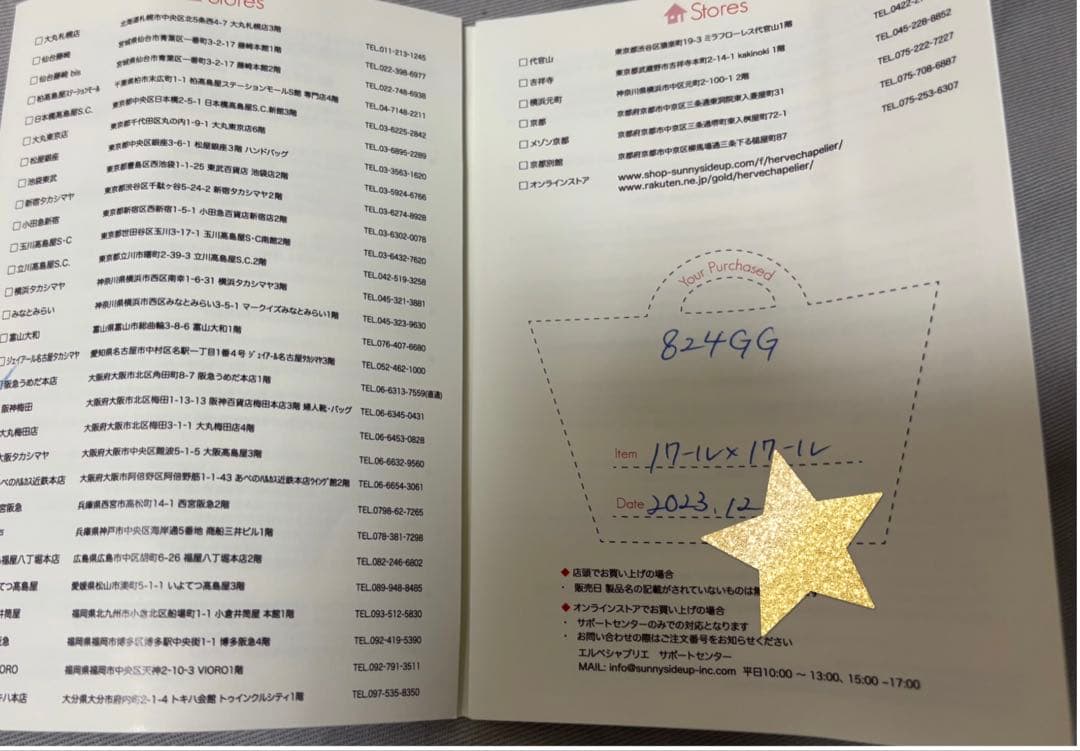 Stores
大丸札幌店 北海道札幌市中央区北5条西4-7 大丸札幌店3階 TEL.011-213-1245
仙台藤崎 宮城県仙台市青葉区一番町3-2-17 藤崎本館1階 TEL.022-398-6977
仙台藤崎 bis 宮城県仙台市青葉区一番町3-2-17 藤崎本館2階 TEL.022-748-6938
柏高島屋ステーションモール 千葉県柏市末広町1-1 柏高島屋ステーションモールS館 専門店4階 TEL.04-7148-2211
日本橋高島屋S.C. 東京都中央区日本橋2-5-1 日本橋高島屋S.C.新館3階 TEL.03-6225-2842
大丸東京店 東京都千代田区丸の内1-9-1 大丸東京店6階 TEL.03-6895-2289
松屋銀座 東京都中央区銀座3-6-1 松屋銀座3階 ハンドバッグ TEL.03-3563-1620
池袋東武 東京都豊島区西池袋1-1-25 東武百貨店 池袋店2階 TEL.03-5924-6766
新宿タカシマヤ 東京都渋谷区千駄ヶ谷5-24-2 新宿タカシマヤ2階 TEL.03-6274-8928
小田急新宿 東京都新宿区西新宿1-5-1 小田急百貨店新宿店2階 TEL.03-6302-0078
玉川高島屋S・C 東京都世田谷区玉川3-17-1 玉川高島屋S・C南館2階 TEL.03-6432-7620
立川高島屋S.C. 東京都立川市曙町2-39-3 立川高島屋S.C.2階 TEL.042-519-3258
横浜タカシマヤ 神奈川県横浜市西区南幸1-6-31 横浜タカシマヤ3階 TEL.045-321-3881
みなとみらい 神奈川県横浜市西区みなとみらい3-5-1 マークイズみなとみらい1階 TEL.045-323-9630
富山大和 富山県富山市総曲輪3-8-6 富山大和1階 TEL.076-407-6680
ジェイアール名古屋タカシマヤ 愛知県名古屋市中村区名駅一丁目1番4号 ジェイアール名古屋タカシマヤ3階 TEL.052-462-1000
阪急うめだ本店 大阪府大阪市北区角田町8-7 阪急うめだ本店1階 TEL.06-6313-7559(直通)
阪神梅田 大阪府大阪市北区梅田1-13-13 阪神百貨店梅田本店3階 婦人靴・バッグ TEL.06-6345-0431
大丸梅田店 大阪府大阪市北区梅田3-1-1 大丸梅田店4階 TEL.06-6453-0828
大阪タカシマヤ 大阪府大阪市中央区難波5-1-5 大阪高島屋3階 TEL.06-6632-9560
べのハルカス近鉄本店 大阪府大阪市阿倍野区阿倍野筋1-1-43 あべのハルカス近鉄本店ウイング館2階 TEL.06-6654-3061
宮阪急 兵庫県西宮市高松町14-1 西宮阪急2階 TEL.0798-62-7265
兵庫県神戸市中央区海岸通5番地 商船三井ビル1階 TEL.078-381-7298
福屋八丁堀本店 広島県広島市中区胡町6-26 福屋八丁堀本店2階 TEL.082-246-6802
てつ高島屋 愛媛県松山市湊町5-1-1 いよてつ高島屋3階 TEL.089-948-8485
井筒屋 福岡県北九州市小倉北区船場町1-1 小倉井筒屋 本館1階 TEL.093-512-5830
急 福岡県福岡市博多区博多駅中央街1-1 博多阪急4階 TEL.092-419-5390
IORO 福岡県福岡市中央区天神2-10-3 VIORO1階 TEL.092-791-3511
ハ本店 大分県大分市府内町2-1-4 トキハ会館 トゥインクルシティ1階 TEL.097-535-8350
Stores
代官山 東京都渋谷区猿楽町19-3 ミラフローレス代官山1階 TEL.0422-2
吉祥寺 東京都武蔵野市吉祥寺本町2-14-1 kakinoki 1階 TEL.045-228-8852
横浜元町 神奈川県横浜市中区元町2-100-1 2階 TEL.075-222-7227
京都 京都府京都市中京区三条通東洞院東入菱屋町31 TEL.075-708-6887
メゾン京都 京都府京都市中京区三条通堺町東入桝屋町72-1 TEL.075-253-6307
京都別館 京都府京都市中京区柳馬場通三条下る槌屋町87
オンラインストア www.shop-sunnysideup.com/f/hervechapelier/
www.rakuten.ne.jp/gold/hervechapelier/
Your Purchased
824GG
Item 1ワール×1ワール
Date 2023.12
◆ 店頭でお買い上げの場合
・ 販売日 製品名の記載がされていないものは
◆ オンラインストアでお買い上げの場合
・ サポートセンターのみでの対応となります
・ お問い合わせの際はご注文番号をお知らせください
エルベシャプリエ サポートセンター
MAIL: info@sunnysideup-inc.com 平日10:00 ~ 13:00、15:00 ~17:00